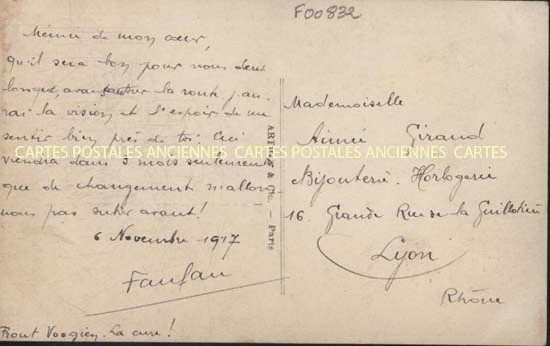 F00832
Mémie de mon cœur,
qu'il sera bon pour nous deux
longue, avant la route j'au
rai la vision et l'espoir de me
sentir bien près de toi. Ceci
viendra dans 3 mois seulement
que de changement n'allons
nous pas subir avant!
6 Novembre 1917
Fanfan
Front Vosgien. La cure!
& Cie. - Paris
Mademoiselle
Aimée Giraud
Bijouterie. Horlogerie
16. Grande Rue de la Guillotière
Lyon
Rhône
CARTES POSTALES ANCIENNES CARTES POSTALES ANCIENNES CARTES